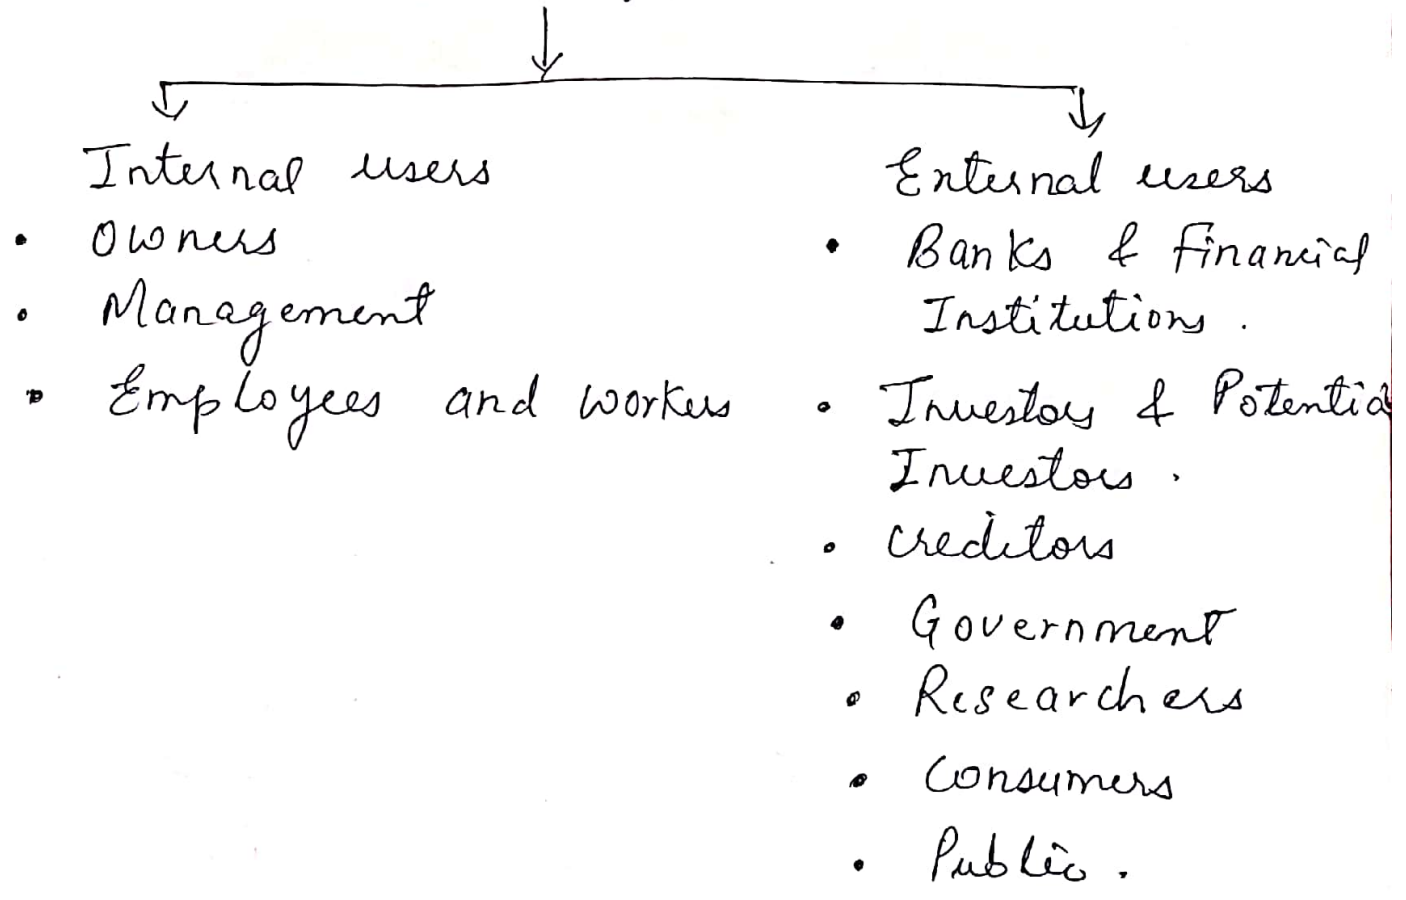 Internal users
• Owners
• Management
• Employees and workers
External users
• Banks & Financial
Institutions.
• Investors & Potentia
Investors.
• Creditors
• Government
• Researchers
• Consumers
• Public.